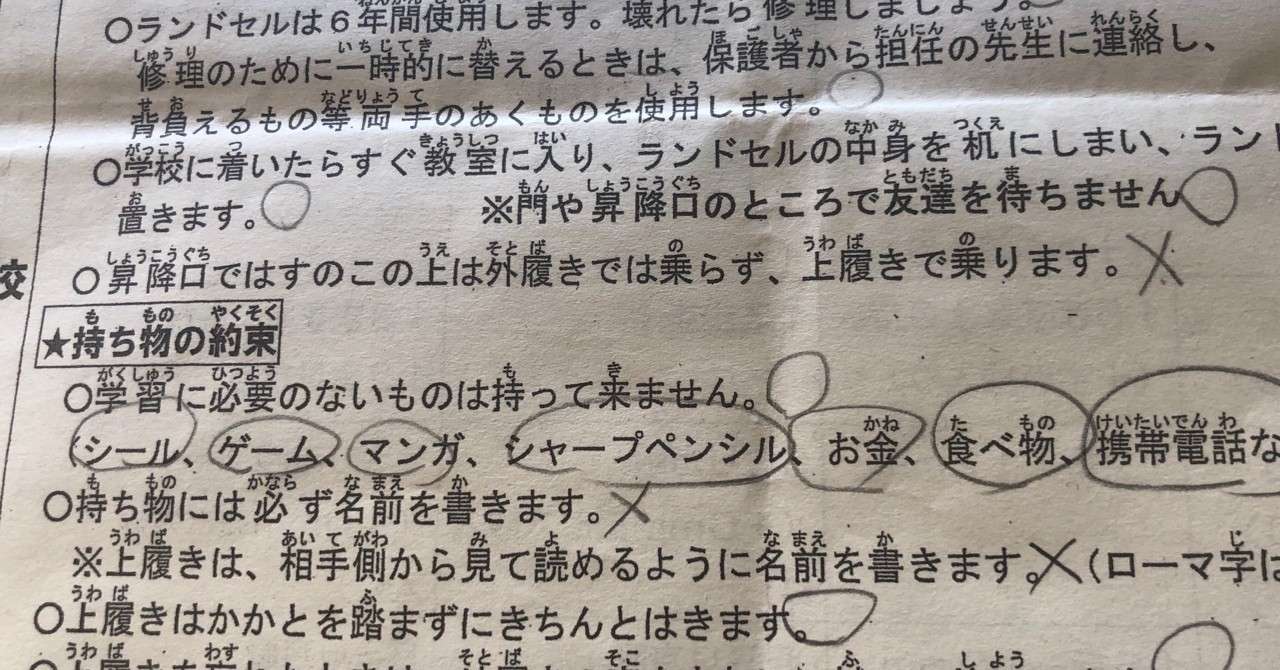 ○ランドセルは６年間使用します。壊れたら修理しましょう。
修理のために一時的に替えるときは、保護者から担任の先生に連絡し、
背負えるもの等両手のあくものを使用します。
○学校に着いたらすぐ教室に入り、ランドセルの中身を机にしまい、ランド
置きます。 ※門や昇降口のところで友達を待ちません
○昇降口ではすのこの上は外履きでは乗らず、上履きで乗ります。
校
★持ち物の約束
○学習に必要のないものは持って来ません。
(シール、ゲーム、マンガ、シャープペンシル、お金、食べ物、携帯電話な
○持ち物には必ず名前を書きます。
※上履きは、相手側から見て読めるように名前を書きます。(ローマ字は
○上履きはかかとを踏まずにきちんとはきます。